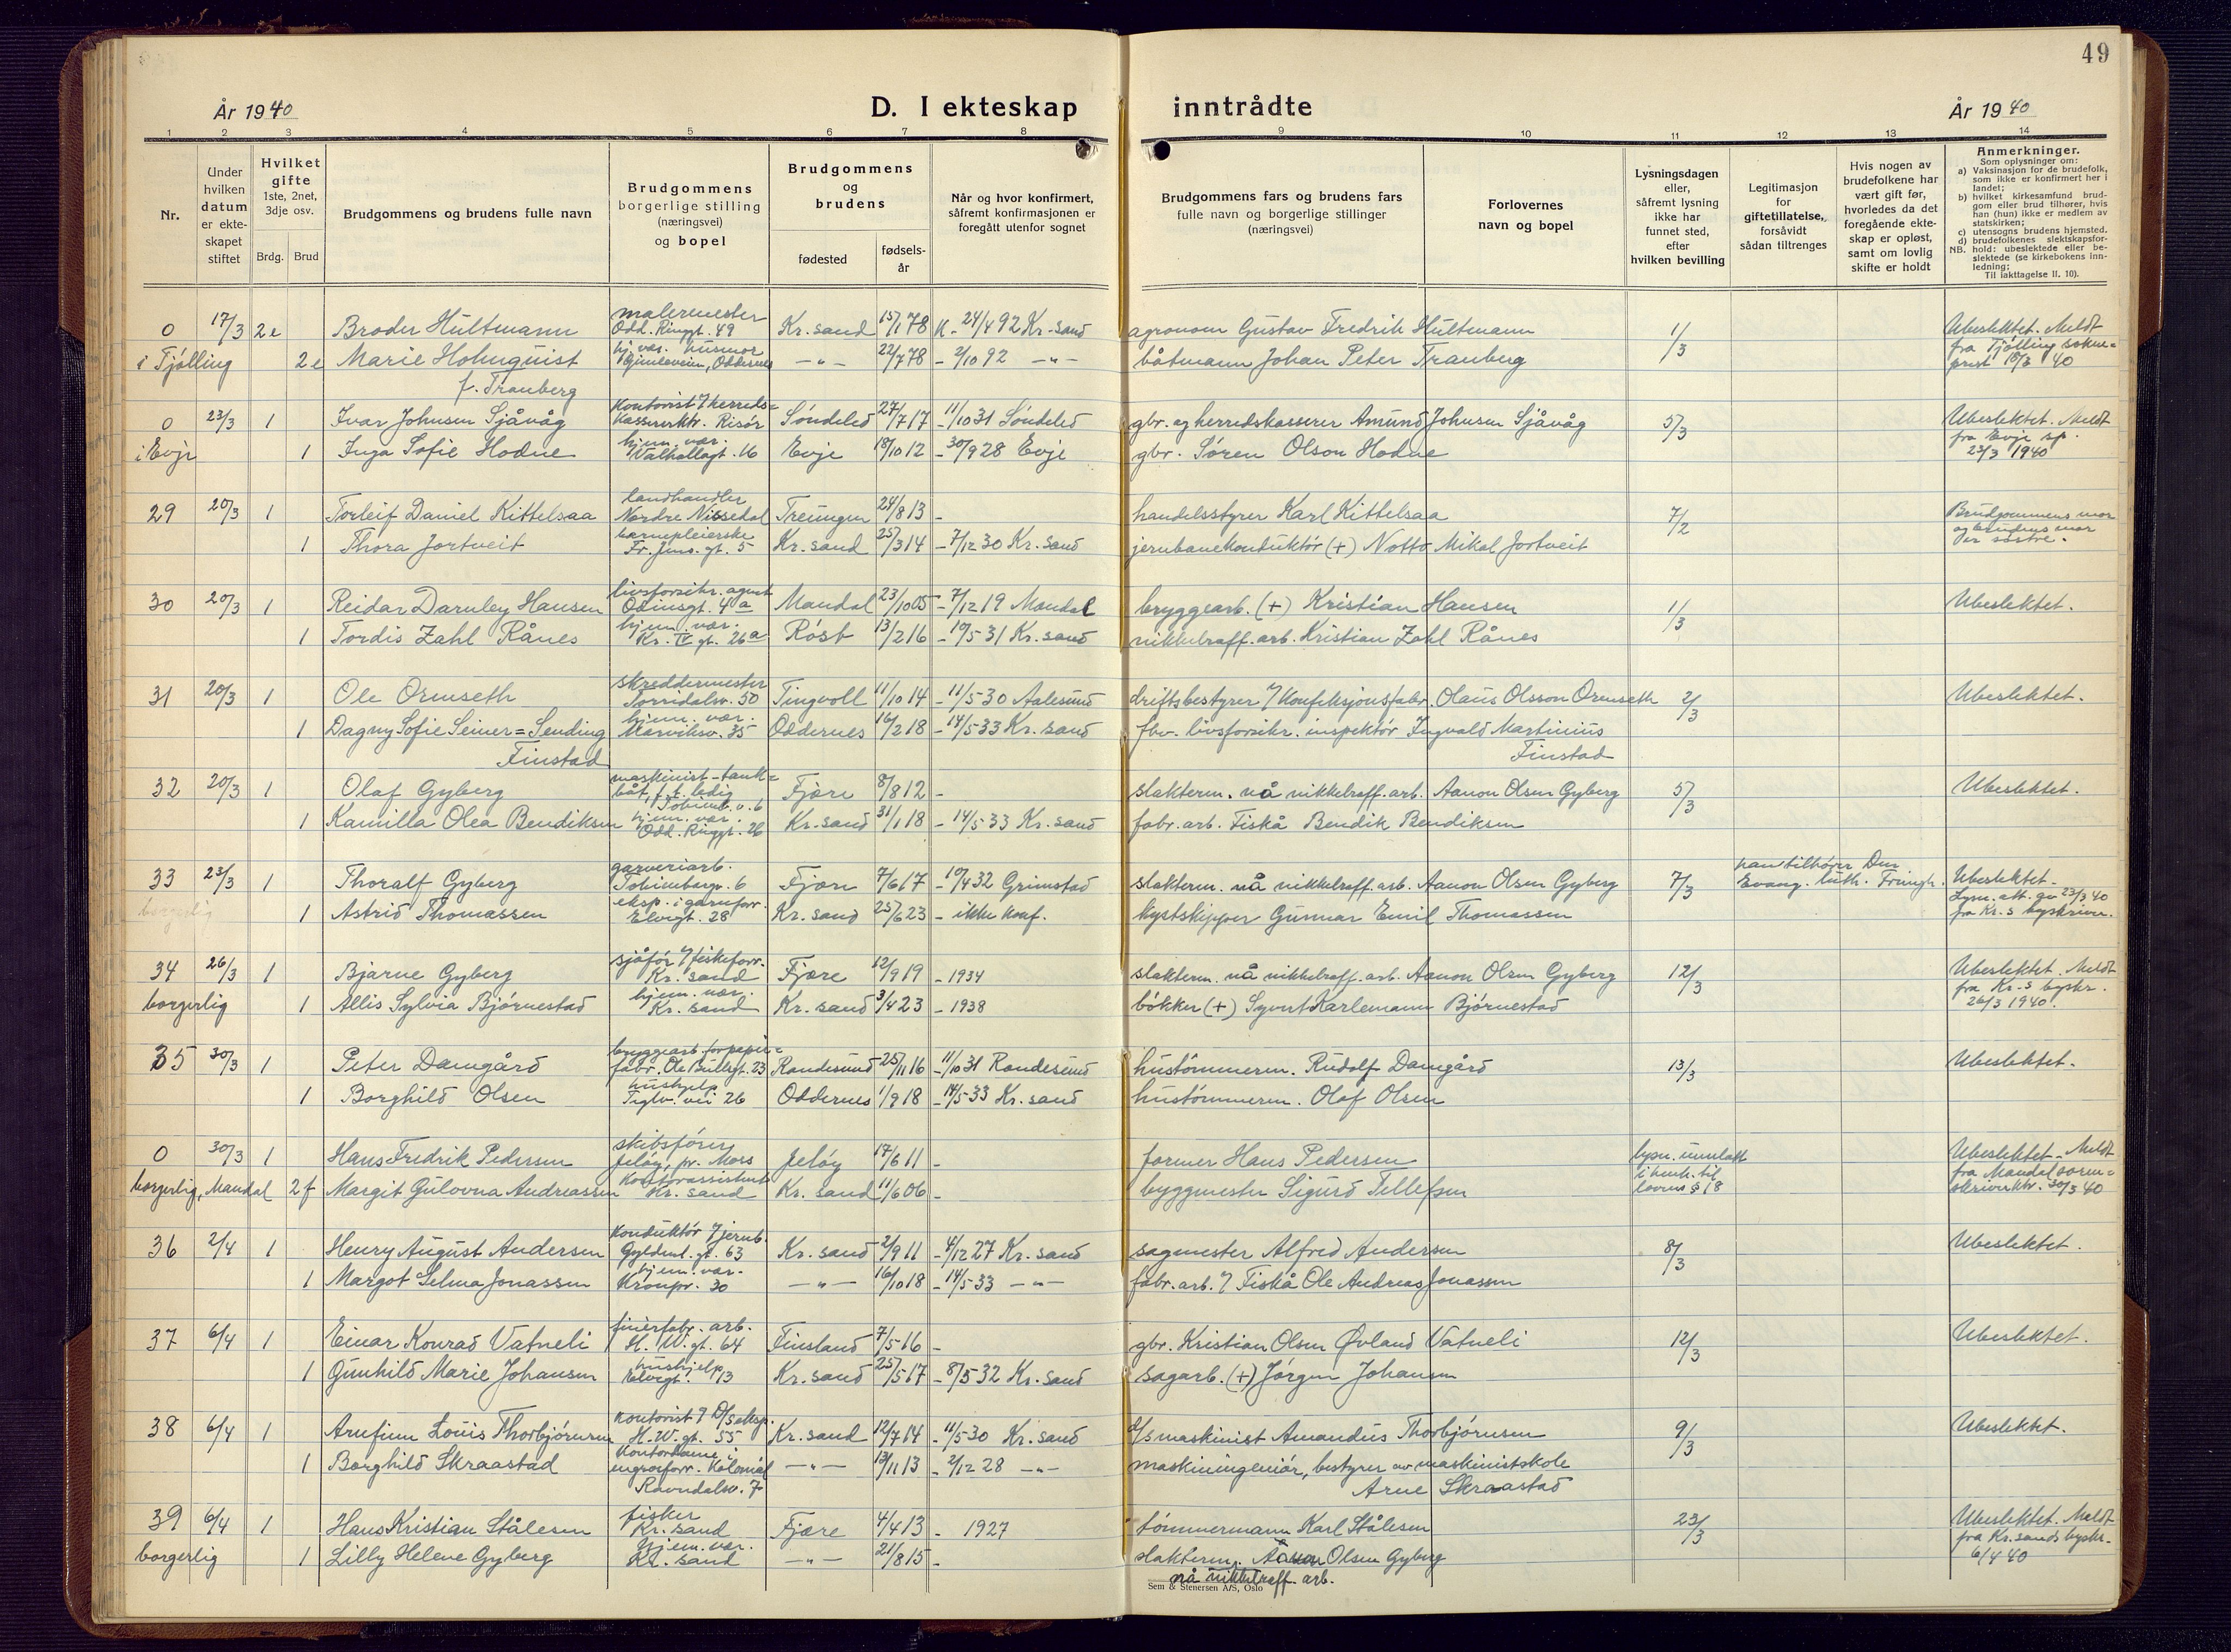 49
År 1940
D. I ekteskap inntrådte
År 1940
1 2 3 4 5 6 7 8 9 10 11 12 13 14
Nr.
Under hvilken datum er ekteskapet stiftet
Hvilket gifte 1ste, 2net, 3dje osv.
Brdg. Brud
Brudgommens og brudens fulle navn
Brudgommens borgerlige stilling (næringsvei) og bopel
Brudgommens og brudens
fødested
fødsels-år
Når og hvor konfirmert, såfremt konfirmasjonen er foregått utenfor sognet
Brudgommens fars og brudens fars fulle navn og borgerlige stillinger (næringsvei)
Forlovernes navn og bopel
Lysningsdagen eller, såfremt lysning ikke har funnet sted, efter hvilken bevilling
Legitimasjon for giftetillatelse, forsåvidt sådan tiltrenges
Hvis nogen av brudefolkene har vært gift før, hvorledes da det foregående ekteskap er opløst, samt om lovlig skifte er holdt
Anmerkninger.
Som oplysninger om:
a) Vaksinasjon for de brudefolk, som ikke er konfirmert her i landet;
b) hvilket kirkesamfund brudgom eller brud tilhører, hvis han (hun) ikke er medlem av statskirken;
c) utensogns brudens hjemsted.
d) brudefolkenes slektskapsforhold: ubeslektede eller beslektede (se kirkebokens innledning;
NB.
Til iakttagelse II. 10).
0 17/3 2e Broder Hultmann malermester Odd. Ringgt. 49 Kr.sand 15/1 78 K - 24/4 92 Kr.sand agronom Gustav Fredrik Hultmann 1/3 Ubeslektet. Meldt fra Tjølling sokneprest 18/3 40
i Tjølling 2e Marie Holmquist f. Tranberg hj. vær. husmor Bjimleveien, Oddernes -"- 22/7 78 - 2/10 92 -"- båtmann Johan Peter Tranberg
0 23/3 1 Ivar Johnsen Sjåvåg Kontorist v/ herredskassererktr. Risör Søndeled 27/7 17 - 11/10 31 Søndeled gbr. og herredskasserer Amund Johnsen Sjåvåg 5/3 Ubeslektet. Meldt fra Evje sp. 23/3 1940
i Evje 1 Inga Sofie Hodne hjem. vær. Valhallagt. 16 Evje 18/10 12 - 30/9 28 Evje gbr. Søren Olson Hodne
29 20/3 1 Torleif Daniel Kittelsaa landhandler Nordre Nissedal Treungen 24/8 13 - handelsstyrer Karl Kittelsaa 7/2 Brudgommens mor og brudens mor er søstre.
1 Thora Jortveit barnepleierske Fr. Jms. gt. 5 Kr. sand 25/3 14 - 7/12 30 Kr. sand jernbanekonduktør (+) Notto Mikal Jortveit
30 20/3 1 Reidar Darnley Hansen livsforsikr. agent Odinsgt. 4a Mandal 23/10 05 - 7/12 19 Mandal bryggearb. (+) Kristian Hansen 1/3 Ubeslektet.
1 Tordis Zahl Rånes hjem. vær. Kr. IV gt. 26a Røst 13/2 16 - 10/5 31 Kr. sand nikkelraff. arb. Kristian Zahl Rånes
31 20/3 1 Ole Ormseth skreddermester Torridalsv. 50 Tingvoll 11/10 14 - 11/5 30 Aalesund driftsbestyrer v/ Konfeksjonsfabr. Olaus Olsson Ormseth 2/3 Ubeslektet.
1 Dagny Sofie Seiner=Sending Finstad hjem. vær. Marviksv. 35 Oddernes 16/2 18 - 14/5 33 Kr. sand fhv. livsforsikr. inspektør Ingvald Martinius Finstad
32 20/3 1 Olaf Gyberg maskinist - tankbåt, f.t. ledig Tobienb.v. 6 Fjære 8/8 12 - slakterm. nå nikkelraff. arb. Aanon Olsen Gyberg 5/3 Ubeslektet.
1 Kamilla Olea Bendiksen hjem. vær. Odd. Ringgt. 26 Kr. sand 31/1 18 - 14/5 33 Kr. sand fabr. arb. Fiskå Bendik Bendiksen
33 23/3 1 Thoralf Gyberg garveriarb. Tobienborgv. 6 Fjære 7/6 17 - 10/4 32 Grimstad slakterm. nå nikkelraff. arb. Aanon Olsen Gyberg 7/3 han tilhører Den Evang. luth. Fringh. Ubeslektet. Lysn. att. gv 23/3 40 fra Kr.s byskriver.
borgerlig 1 Astrid Thomassen eksp. i garnforr. Elvegt. 28 Kr. sand 25/6 23 - ikke konf. kystskipper Gunnar Emil Thomassen
34 26/3 1 Bjarne Gyberg sjåför v/ fiskeforr. Kr. sand Fjære 12/9 19 - 1934 slakterm. nå nikkelraff. arb. Aanon Olsen Gyberg 12/3 Ubeslektet. Meldt fra Kr.-s byskr. 26/3 1940.
borgerlig 1 Allis Sylvia Bjørnestad hjem. vær. Kr. sand Kr. sand 3/4 23 - 1938 bøkker (+) Syvert Karlemann Bjørnestad
35 30/3 1 Peter Damgård bryggearb. for papirfabr. Ole Bullsgt. 23 Randesund 25/11 16 - 11/10 31 Randesund hustømmerm. Rudolf Damgård 13/3 Ubeslektet.
1 Borghild Olsen hushjelp Teglv. vei 26 Oddernes 1/9 18 - 14/5 33 Kr. sand hustømmerm. Olaf Olsen
0 30/3 1 Hans Fredrik Pedersen skibsfører Jeløy, pr. Moss Jeløy 17/6 11 - former Hans Pedersen lysn. unnlatt i henh. til lovens § 18 Ubeslektet - Meldt fra Mandal sorenskriverktr. 30/3 40
borgerlig, Mandal 2f Margit Gulovna Andreassen Kontorassistent Kr. sand Kr. sand 11/6 06 - byggmester Sigurd Tellefsen
36 2/4 1 Henry August Andersen Konduktør v/ jernb. Gyldenl. gt. 63 Kr. sand 2/9 11 - 4/12 27 Kr. sand sagmester Alfred Andersen 8/3 Ubeslektet.
1 Margot Selma Jonassen hjem. vær. Kronpr. 30 -"- 16/10 18 - 14/5 33 -"- fabr. arb. v/ Fiskå Ole Andreas Jonassen
37 6/4 1 Einar Konrad Vatneli finérfabr. arb. H. W. gt. 64 Finsland 7/5 16 - gbr. Kristian Olsen Øvland Vatneli 12/3 Ubeslektet.
1 Gunhild Marie Johansen hushjelp Elvegt. 13 Kr. sand 25/5 17 - 8/5 32 Kr. sand sagarb. (+) Jørgen Johansen
38 6/4 1 Arnfinn Louis Thorbjørnsen Kontorist v/ D/s eksp. H. W. gt. 55 Kr. sand 12/7 14 - 11/5 30 Kr. sand d/s maskinist Amandus Thorbjørnsen 9/3 Ubeslektet.
1 Borghild Skraastad Kontordame i engrosforr. Kolonial Ravndalsv. 7 -"- 13/11 13 - 2/12 28 -"- maskiningeniør, bestyrer av maskinistskole Arne Skraastad
39 6/4 1 Hans Kristian Stålesen fisker Kr. sand Fjære 4/4 13 - 1927 tømmermann Karl Stålesen 23/3 Ubeslektet. Meldt fra Kr. sands byskr. 6/4 40
borgerlig 1 Lilly Helene Gyberg hjem. vær. Kr. sand -"- 21/8 15 - slakterm. Aanon Olsen Gyberg nå nikkelraff. arb.
Sem & Stenersen A/S, Oslo